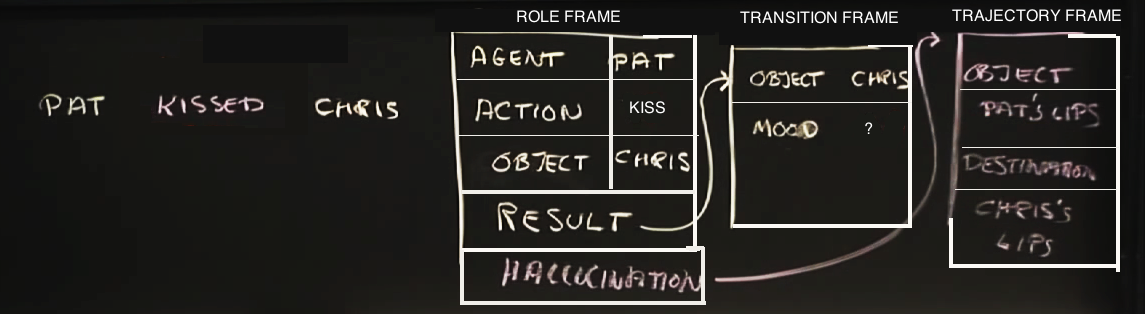 PAT KISSED CHRIS
ROLE FRAME
AGENT PAT
ACTION KISS
OBJECT CHRIS
RESULT
HALLUCINATION
TRANSITION FRAME
OBJECT CHRIS
MOOD ?
TRAJECTORY FRAME
OBJECT
PAT'S LIPS
DESTINATION
CHRIS'S
LIPS